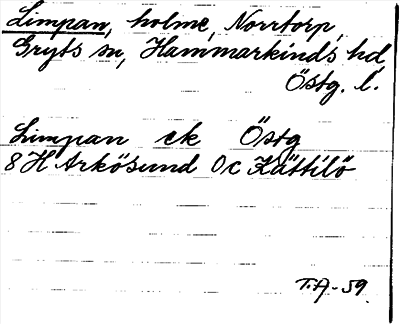 Limpan, holme, Norrtorp,
Gryts sn, Hammarkinds hd,
Östg. l.
Limpan ek Östg
8 H Arkösund 0c Kättilö
T.A-59